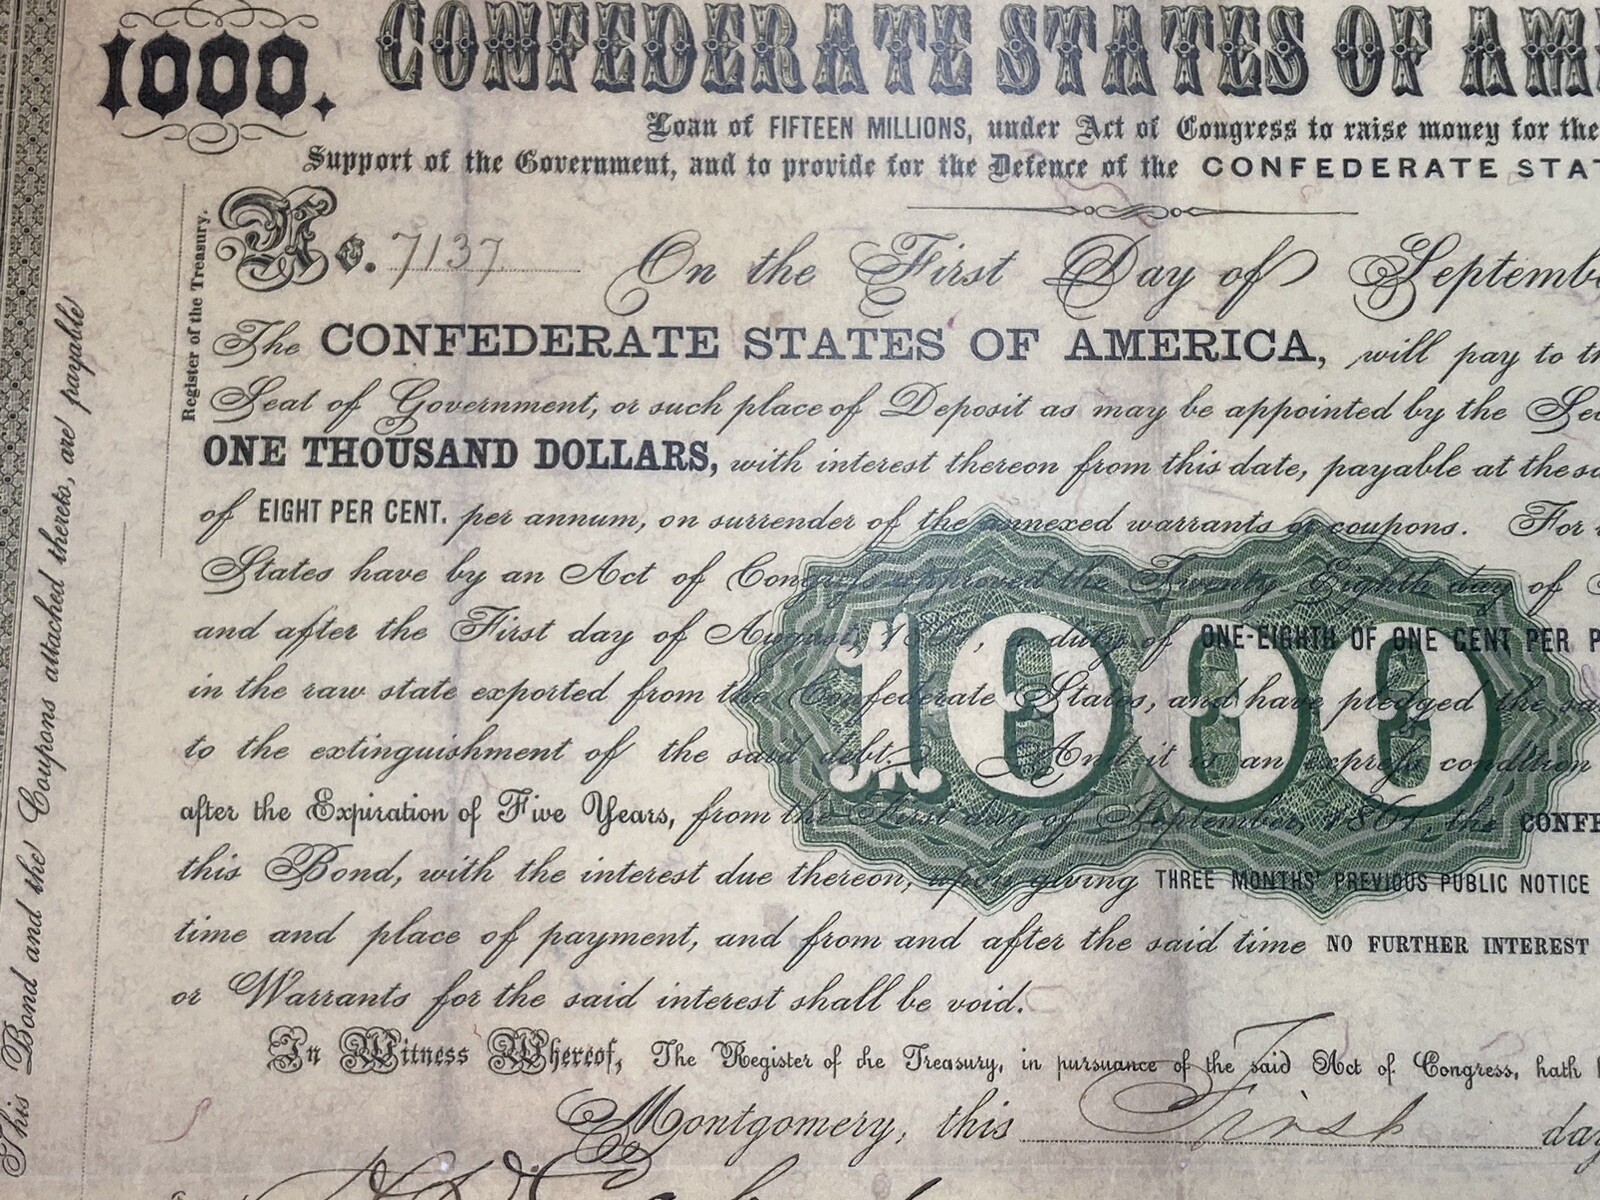 1000.
CONFEDERATE STATES OF AM
Loan of FIFTEEN MILLIONS, under Act of Congress to raise money for the
Support of the Government, and to provide for the Defence of the CONFEDERATE STAT
Register of the Treasury.
No. 7137
On the First Day of Septembe
The CONFEDERATE STATES OF AMERICA, will pay to th
Seat of Government, or such place of Deposit as may be appointed by the Sec
ONE THOUSAND DOLLARS, with interest thereon from this date, payable at the sa
of EIGHT PER CENT. per annum, on surrender of the annexed warrants or coupons. For
States have by an Act of Congress approved the Twenty Eighth day of
and after the First day of August, 1861, a duty of ONE-EIGHTH OF ONE CENT PER P
in the raw state exported from the Confederate States, and have pledged the sa
to the extinguishment of the said debt. And it is an express condition
after the Expiration of Five Years, from the First day of September, 1861, the CONFE
this Bond, with the interest due thereon, upon giving THREE MONTHS' PREVIOUS PUBLIC NOTICE
time and place of payment, and from and after the said time NO FURTHER INTEREST
or Warrants for the said interest shall be void.
In Witness Whereof, The Register of the Treasury, in pursuance of the said Act of Congress, hath
Montgomery, this First day
1000
This Bond and the Coupons attached thereto, are payable